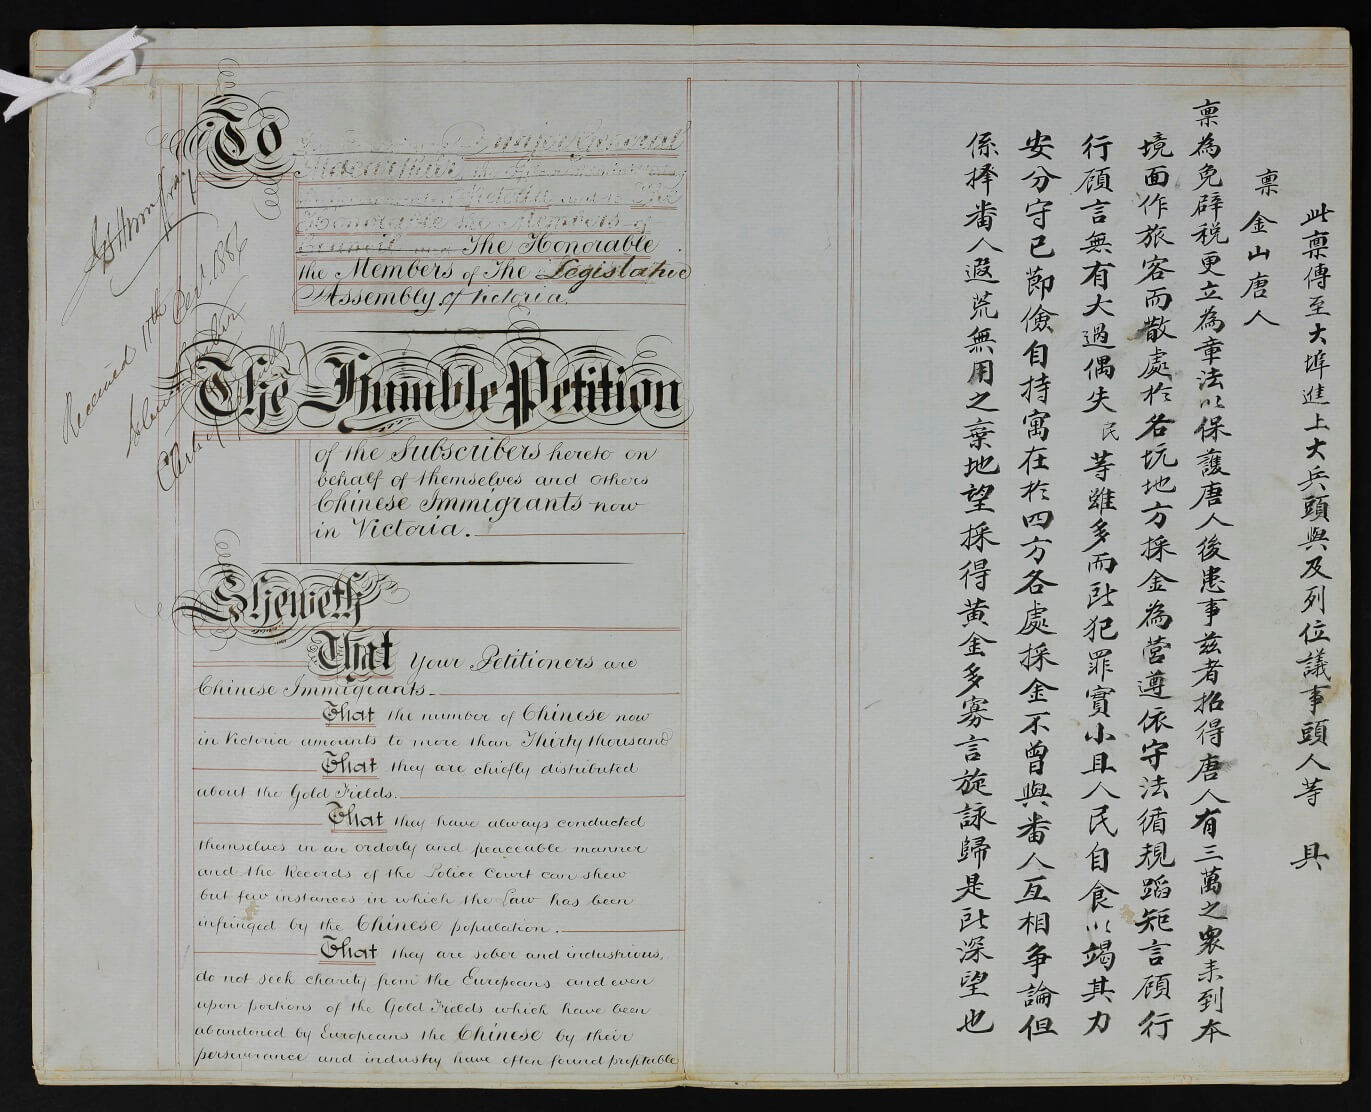 To
Major General
Macarthur
Victoria and to The
Honorable the Members of
The Honorable
the Members of The Legislative
Assembly of Victoria.
The Humble Petition
of the Subscribers hereto on
behalf of themselves and others
Chinese Immigrants now
in Victoria.
Sheweth
That Your Petitioners are
Chinese Immigrants.
That the number of Chinese now
in Victoria amounts to more than Thirty thousand
That they are chiefly distributed
about the Gold Fields.
That they have always conducted
themselves in an orderly and peaceable manner
and the Records of the Police Court can shew
but few instances in which the Law has been
infringed by the Chinese population.
That they are sober and industrious,
do not seek charity from the Europeans and even
upon portions of the Gold Fields which have been
abandoned by Europeans the Chinese by their
perseverance and industry have often found profitable
Received 17th
Clerk of
此禀傳至大埠進上大兵頭與及列位議事頭人等 具
禀 金山唐人
禀為免辟税更立為章法以保護唐人後患事茲者招得唐人有三萬之衆来到本
境面作旅客而散處於各坑地方採金為營遵依守法循規蹈矩言顧行
行顧言無有大過偶失民等雖多而此犯罪實小且人民自食以竭其力
安分守已節儉自持寓在於四方各處採金不曾與番人互相争論但
係擇番人遐荒無用之棄地望採得黄金多寡言旋詠歸是此深望也